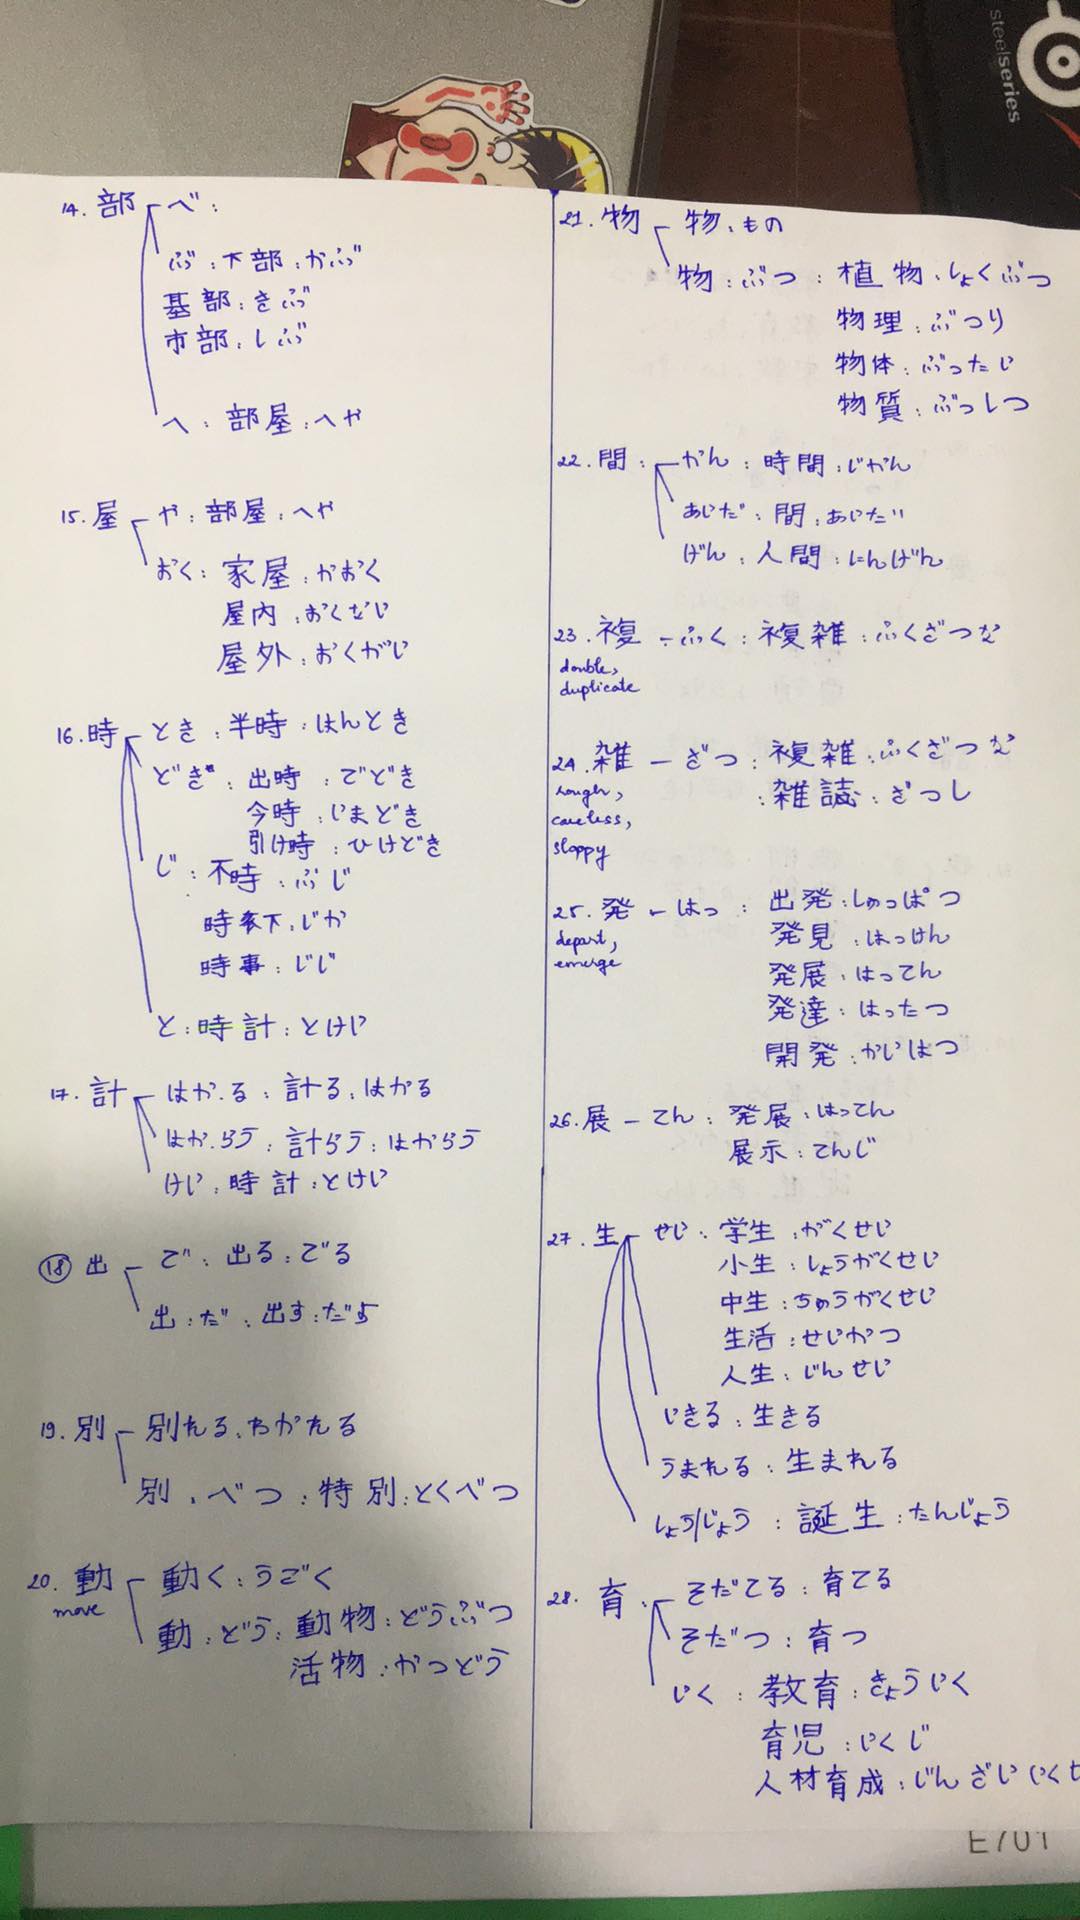 steelseries
14. 部 - べ :
ぶ : 下部 : かぶ
基部 : きぶ
市部 : しぶ
へ : 部屋 : へや
15. 屋 - や : 部屋 : へや
おく : 家屋 : かおく
屋内 : おくない
屋外 : おくがい
16. 時 - とき : 半時 : はんとき
どき : 出時 : でどき
今時 : いまどき
引け時 : ひけどき
じ : 不時 : ふじ
時下 : じか
時事 : じじ
と : 時計 : とけい
17. 計 - はか.る : 計る : はかる
はか.らう : 計らう : はからう
けい : 時計 : とけい
18 出 - で : 出る : でる
出 : だ : 出す : だす
19. 別 - 別れる : わかれる
別 : べつ : 特別 : とくべつ
20. 動 - 動く : うごく
move
動 : どう : 動物 : どうぶつ
活物 : かつどう
21. 物 - 物 : もの
物 : ぶつ : 植物 : しょくぶつ
物理 : ぶつり
物体 : ぶったい
物質 : ぶっしつ
22. 間 : - かん : 時間 : じかん
あいだ : 間 : あいだ
げん : 人間 : にんげん
23. 複 - ふく : 複雑 : ふくざつな
double,
duplicate
24. 雑 - ざつ : 複雑 : ふくざつな
rough,
: 雑誌 : ざっし
careless,
sloppy
25. 発 - はっ : 出発 : しゅっぱつ
depart,
発見 : はっけん
emerge
発展 : はってん
発達 : はったつ
開発 : かいはつ
26. 展 - てん : 発展 : はってん
展示 : てんじ
27. 生 - せい : 学生 : がくせい
小生 : しょうがくせい
中生 : ちゅうがくせい
生活 : せいかつ
人生 : じんせい
いきる : 生きる
うまれる : 生まれる
しょう/じょう : 誕生 : たんじょう
28. 育 : - そだてる : 育てる
そだつ : 育つ
いく : 教育 : きょういく
育児 : いくじ
人材育成 : じんざいいく
E701